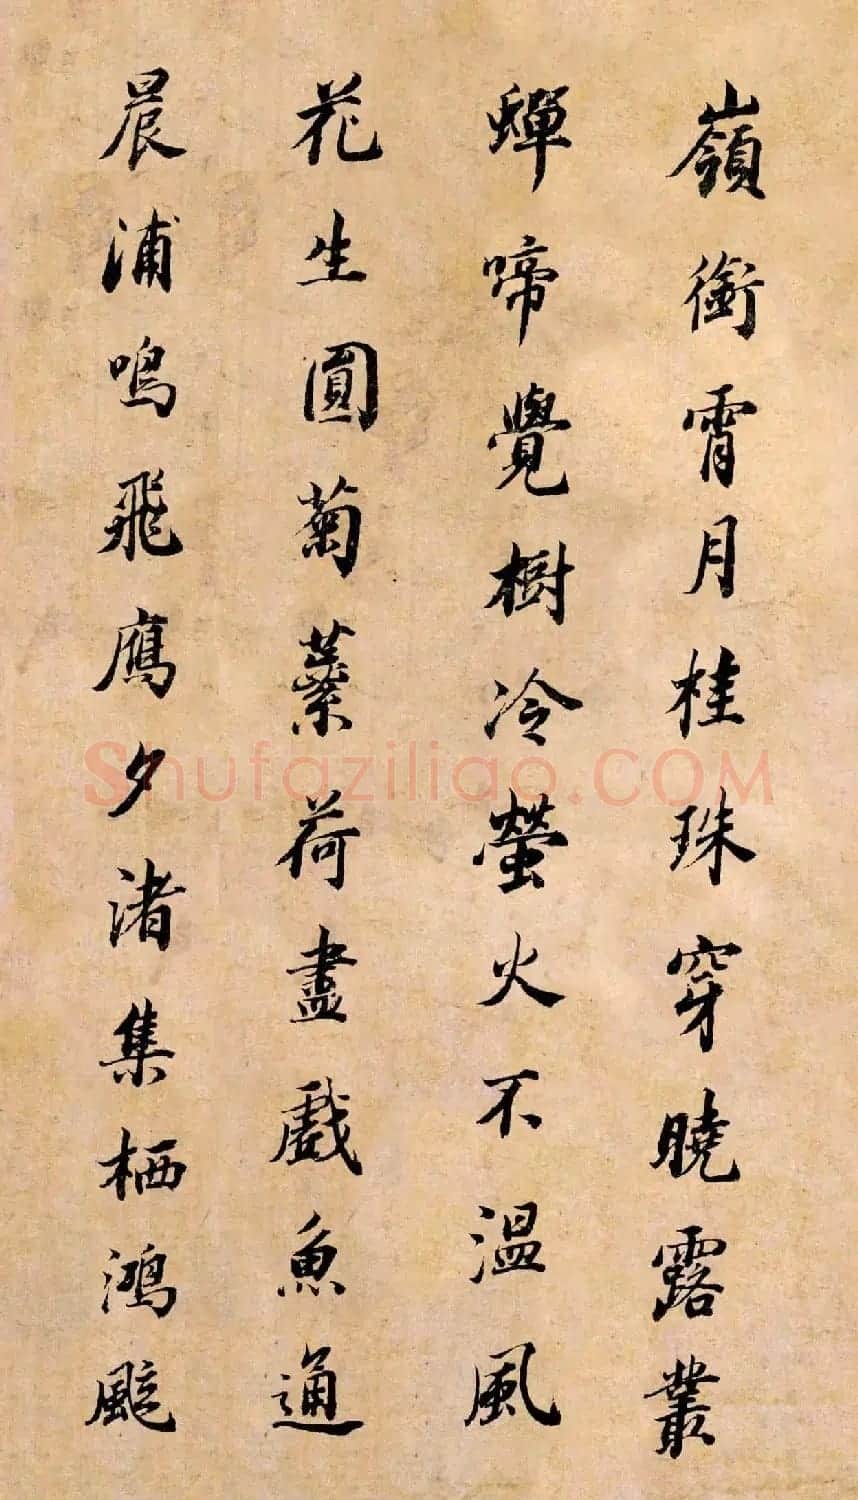 嶺銜霄月桂珠穿曉露叢
蟬啼覺樹冷螢火不溫風
花生圓菊蘂荷盡戲魚通
晨浦鳴飛鴈夕渚集栖鴻颯
Shufaziliao.COM